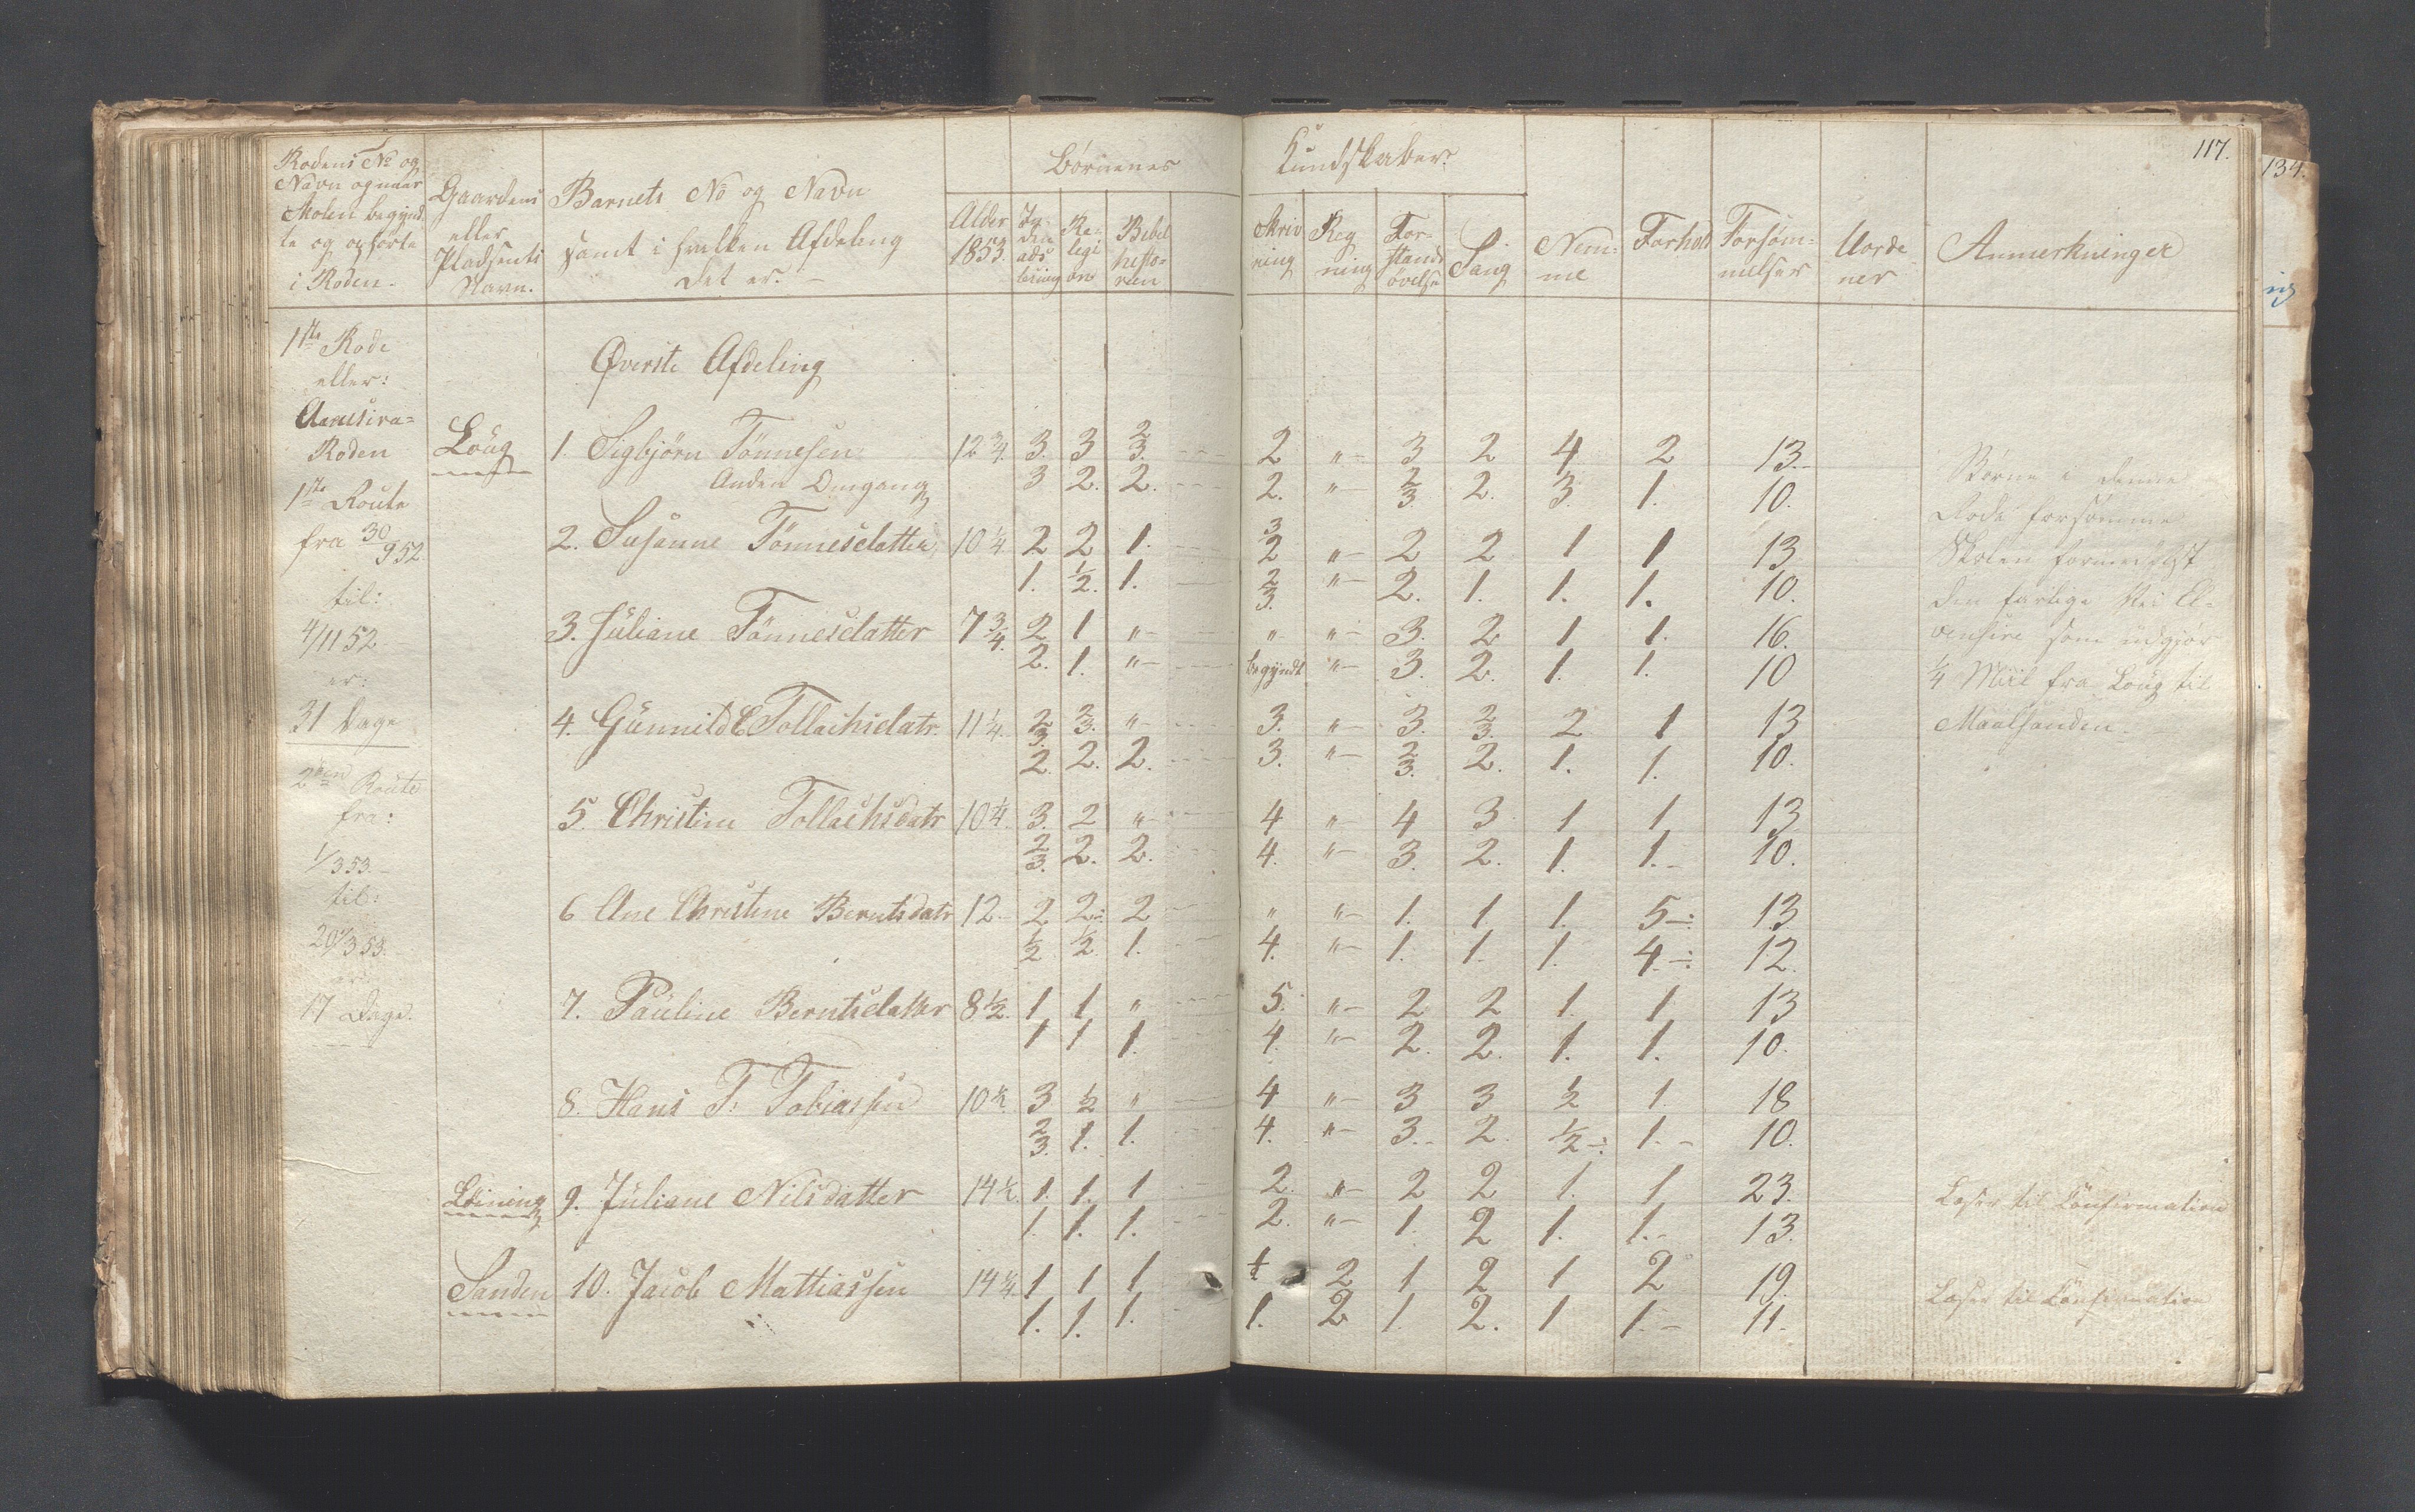 117.
134.
Rodens No og
Navn og naar
Skolen begynd
te og ophørte
i Roden.
Gaardens
eller
Pladsents
Navn.
Barnets No og Navn
samt i hvilken Afdeling
det er. -
Børnenes Kundskaber.
Alder
1853.
Religion
Bibelhistorien
Skrivning
Regning
Forstandsøvelse
Sang
Nemme
Forhold
Forsømmelser
Uordener
Anmerkninger
1ste Rode
eller:
Roden
1ste Route
fra 30/9 52.
til:
4/11 52
er:
31 Dage
2den Route
fra:
1/3 53.-
til:
20/3 53.
er
17 Dage.
Øverste Afdeling
Loug 1. Sigbjørn Tønnesen 12 3/4. 3. 3 2/3. 2 "- 3 2 4 2 13.-
Anden Omgang 3 2. 2. 2. "- 2/3. 2. 3. 1. 10.
2. Susanne Tønnesdatter 10 1/4. 2 2 1. 3/2 "- 2 2 1 1 13
1. 1/2. 1. 2/3. "- 2. 1. 1. 1. 10.
3. Juliane Tønnesdatter 7 3/4. 2 1 "- " "- 3. 2 1 1. 16.
2. 1. "- begyndt "- 3. 2. 1. 1. 10
4. Gunnild E Tollachsdatr. 11 1/4. 2/3. 2/3. "- 3. "- 3. 2/3. 2 1 13
2. 2. 2. 3. "- 2/3. 2. 1. 1. 10.
5. Christine Tollachsdatr 10 1/4. 3. 2 "- 4 "- 4 3 1 1 13
2/3. 2. 2. 4. "- 3. 2. 1. 1.- 10.
6 Ane Christine Berntsdatr 12.- 2. 2 2 " "- 1. 1 1. 5-: 13
1/2 1/2. 1. 4. "- 1. 1. 1. 4.-: 12.
7. Pauline Berntsdatter 8 1/2. 1 1 " 5. "- 2 2 1. 1. 13
1 1 1. 4. "- 2. 2. 1. 1. 10.
8. Hans T: Tobiassen 10 1/2. 3 1/2 " 4 "- 3 3 1/2 1 18
2/3. 1. 1. 4. "- 3.- 2. 1/2-: 1.- 10.
9. Juliane Nilsdatter 14 1/2. 1. 1. 1 2. "- 2 2 1. 1 23.
1. 1. 1. 2. "- 1. 2 1. 1.- 13.
Sanden 10. Jacob Mattiassen 14 1/4. 1 1 1 1/2 2 1 2 1 2 19.
1. 1. 1. 1. 2 1. 2. 1 1.- 11.
Børne i denne
Rode forsømme
Skolen formedelst
den farlige Vei
som udgjør
1/4 Miil fra Loug til
Maalsanden.
Læser til Confirmation
Læser til Confirmation